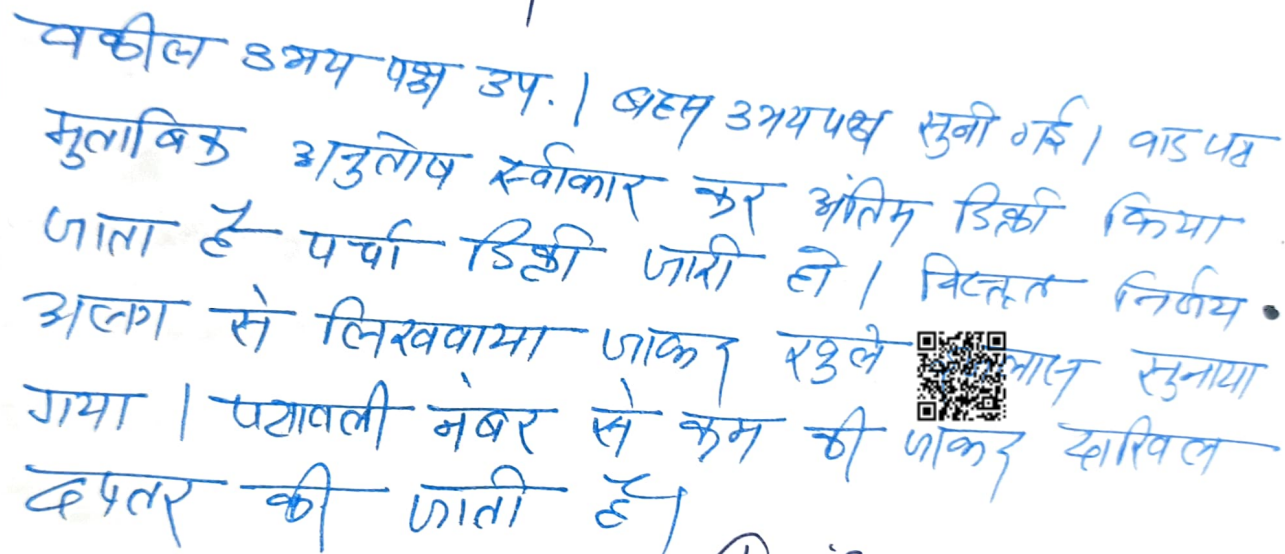 वकील उभय पक्ष उप.। बहस उभयपक्ष सुनी गई। वाद पत्र
मुताबिक अनुतोष स्वीकार कर अंतिम डिक्री किया
जाता है पर्चा डिक्री जारी हो। विस्तृत निर्णय
अलग से लिखवाया जाकर खुले सुनाया
गया। पत्रावली नंबर से कम की जाकर दाखिल
दफ्तर की जाती है।